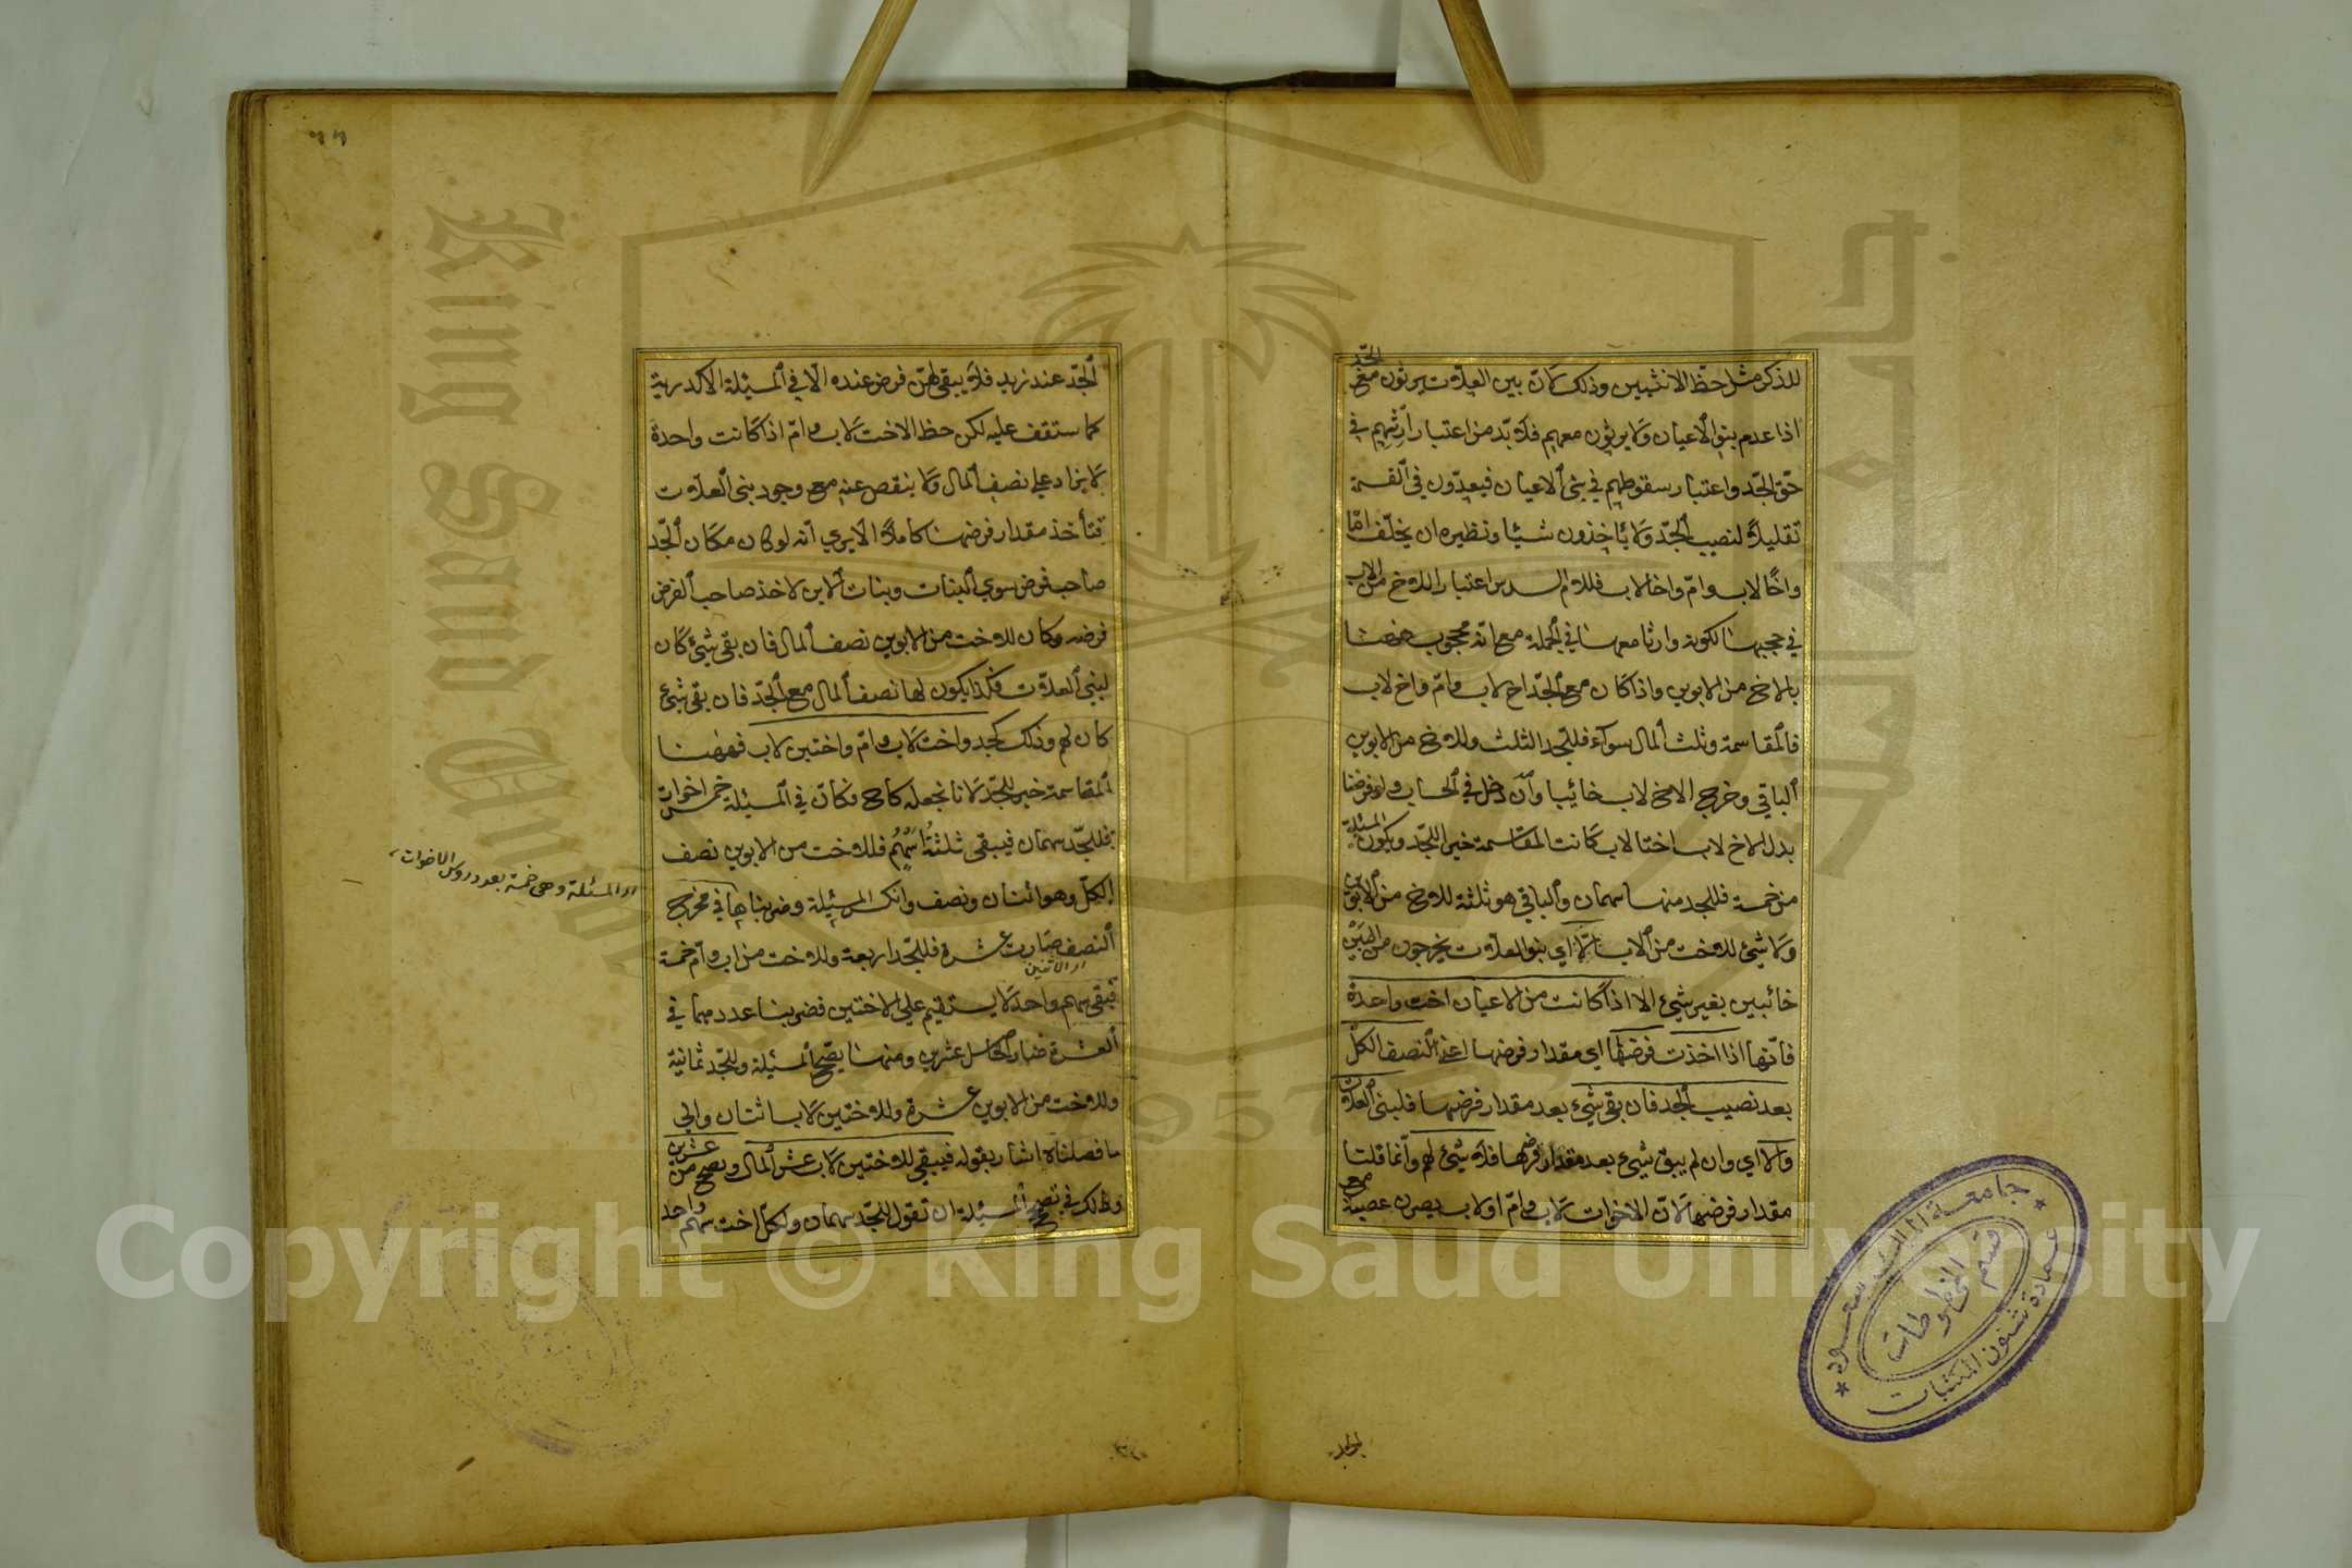 للذكر مثل حظ الانثيين وذلك لان بني العلات يرثون مع الجد
اذا عدم بنو الاعيان ولا يرثون معهم فلا بد من اعتبار ارثهم في
حق الجد واعتبار سقوطهم في بني الاعيان فيعدون في القسمة
تقليلا لنصيب الجد ولا يأخذون شيئا ونظيره ان يخلف اما
واخا لاب وام واخا لاب فللام السدس اعتبار اللاخ من الاب
في حجبها لكونه وارثا معها في الجملة مع انه محجوب ههنا
بالاخ من الابوين واذا كان مع الجد اخ لاب وام واخ لاب
فالمقاسمة وثلث المال سواء فللجد الثلث وللاخ من الابوين
الباقي وخرج الاخ لاب خائبا وان دخل في الحساب ولو فرضنا
بدل الاخ لاب اختا لاب كانت المقاسمة خيرا للجد ويكون المسئلة
من خمسة فللجد منها سهمان والباقي هو ثلثة للاخ من الابوين
ولا شيء للاخت من الاب اي بنو العلات يخرجون من البين
خائبين بغير شيء الا اذا كانت من الاعيان اخت واحدة
فانها اذا اخذت فرضها اي مقدار فرضها اعني النصف الكل
بعد نصيب الجد فان بقي شيء بعد مقدار فرضها فلبني العلات
والا اي وان لم يبق شيء بعد مقدار فرضها فلا شيء لهم وانما قلنا
مقدار فرضها لان الاخوات لاب وام او لاب يصرن عصبة مع
الجد
الجد عند زيد فلا يبقى لهن فرض عنده الا في المسئلة الاكدرية
كما ستقف عليه لكن حظ الاخت لاب وام اذا كانت واحدة
لا يزاد على نصف المال ولا ينقص عنه مع وجود بني العلات
فتأخذ مقدار فرضها كاملا الا يرى انه لو كان مكان الجد
صاحب فرض سوى البنات وبنات الابن لاخذ صاحب الفرض
فرضه وكان للاخت من الابوين نصف المال فان بقي شيء كان
لبني العلات فكذا يكون لها نصف المال مع الجد فان بقي شيء
كان لهم وذلك كجد واخت لاب وام واختين لاب فههنا
المقاسمة خير للجد لانا نجعله كاخ فكان في المسئلة خمس اخوات
فللجد سهمان فيبقى ثلثة اسهم فللاخت من الابوين نصف
الكل وهو اثنان ونصف وانكسر المسئلة وضربناها في مخرج
اي المسئلة وهي خمسة بعدد رؤس الاخوات
النصف صارت عشرة فللجد اربعة وللاخت من اب وام خمسة
اي الاثنين
فبقي سهم واحد لا يستقيم على الاختين فضربنا عددهما في
العشرة فصار الحاصل عشرين ومنها يصح المسئلة وللجد ثمانية
وللاخت من الابوين عشرة وللاختين لاب اثنتان والى
ما فصلناه اشار بقوله فيبقى للاختين لاب عشر المال وتصح من عشرين
في تصحيح المسئلة ان تقول للجد سهمان ولكل اخت سهم واحد
جامعة الملك سعود
عمادة شئون المكتبات
قسم المخطوطات
King Saud University
1957
Copyright © King Saud University